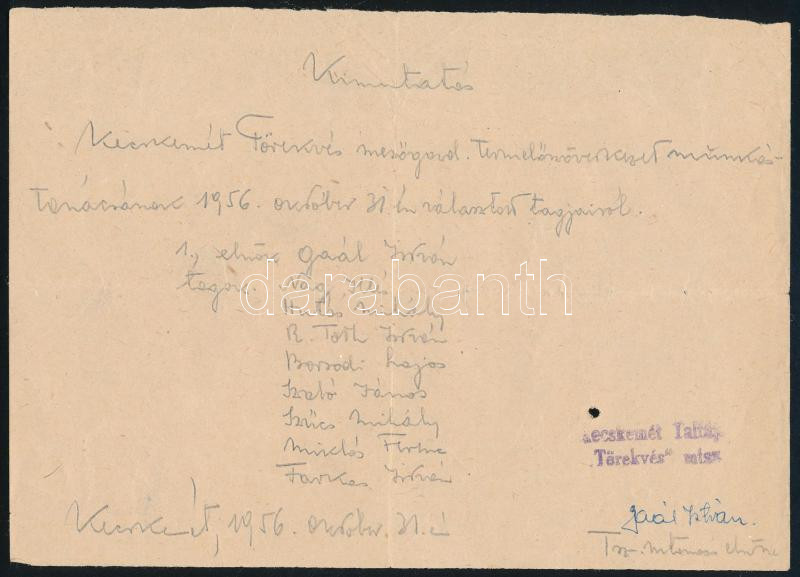 Kimutatás
Kecskemét Törekvés mezőgazd. Termelőszövetkezet munkás-
tanácsának 1956. október 31 én választott tagjairól.
1., elnök Gaál István
tagok. Nagy Illés
Hutás Mihály
R. Tóth István
Borsodi Lajos
Szabó János
Szűcs Mihály
Miklós Ferenc
Farkas István
darabanth
Kecskemét Talfája
"Törekvés" mtsz
Kecskemét, 1956. október. 31. én
Gaál István.
Tsz. elnöke